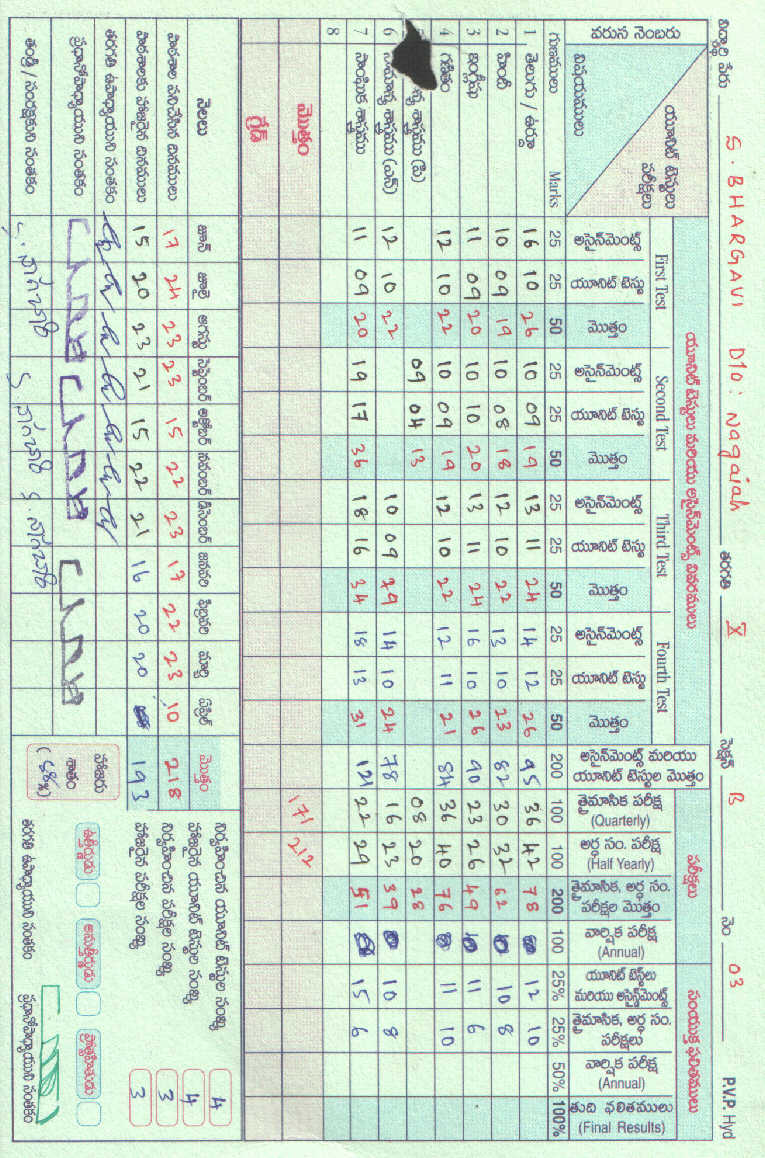 విద్యార్థి పేరు S. BHARGAVI D/o: Nagaiah తరగతి X సెక్షన్ B నెం 03 P.V.P. Hyd
వరుస నెంబరు యూనిట్ టెస్టులు పరీక్షలు విషయములు యూనిట్ టెస్టులు మరియు అసైన్‌మెంట్స్ వివరములు పరీక్షలు సంయుక్త ఫలితములు
First Test Second Test Third Test Fourth Test
అసైన్‌మెంట్స్ యూనిట్ టెస్టు మొత్తం అసైన్‌మెంట్స్ యూనిట్ టెస్టు మొత్తం అసైన్‌మెంట్స్ యూనిట్ టెస్టు మొత్తం అసైన్‌మెంట్స్ యూనిట్ టెస్టు మొత్తం అసైన్‌మెంట్స్ మరియు యూనిట్ టెస్టుల మొత్తం త్రైమాసిక పరీక్ష (Quarterly) అర్ధ సం. పరీక్ష (Half Yearly) త్రైమాసిక, అర్ధ సం. పరీక్షల మొత్తం వార్షిక పరీక్ష (Annual) యూనిట్ టెస్ట్‌లు మరియు అసైన్‌మెంట్స్ త్రైమాసిక, అర్ధ సం. పరీక్షలు వార్షిక పరీక్ష (Annual) తుది ఫలితములు (Final Results)
గుణములు Marks 25 25 50 25 25 50 25 25 50 25 25 50 200 100 100 200 100 25% 25% 50% 100%
1 తెలుగు / ఉర్దూ 16 10 26 10 09 19 13 11 24 14 12 26 95 36 42 78 12 10
2 హిందీ 10 09 19 10 08 18 12 10 22 13 10 23 82 30 32 62 10 8
3 ఇంగ్లీషు 11 09 20 10 10 20 13 11 24 16 10 26 90 23 26 49 11 6
4 గణితం 12 10 22 10 09 19 12 10 22 12 11 21 84 36 40 76 11 10
శాస్త్రము (పి) 09 04 13 08 20 28
6 సామాన్య శాస్త్రము (ఎన్) 12 10 22 10 09 29 14 10 24 78 16 23 39 10 8
7 సాంఘిక శాస్త్రము 11 09 20 19 17 36 18 16 34 18 13 31 121 22 29 51 15 6
8
మొత్తం 171 212
గ్రేడ్
నెలలు జూన్ జూలై ఆగస్టు సెప్టెంబర్ అక్టోబర్ నవంబర్ డిసెంబర్ జనవరి ఫిబ్రవరి మార్చి ఏప్రిల్ మొత్తం
పాఠశాల పనిచేసిన దినములు 17 24 23 23 15 22 23 17 22 23 10 218
పాఠశాలకు హాజరైన దినములు 15 20 23 21 15 22 21 16 20 20 193
తరగతి ఉపాధ్యాయుని సంతకం
ప్రధానోపాధ్యాయుని సంతకం
తండ్రి / సంరక్షకుని సంతకం S. నాగయ్య S. నాగయ్య S. నాగయ్య
హాజరు శాతం (88%)
నిర్వహించిన యూనిట్ టెస్టుల సంఖ్య 4
హాజరైన యూనిట్ టెస్టుల సంఖ్య 4
నిర్వహించిన పరీక్షల సంఖ్య 3
హాజరైన పరీక్షల సంఖ్య 3
ఉత్తీర్ణుడు అనుత్తీర్ణుడు ప్రోత్సాహితుడు
తరగతి ఉపాధ్యాయుని సంతకం ప్రధానోపాధ్యాయుని సంతకం